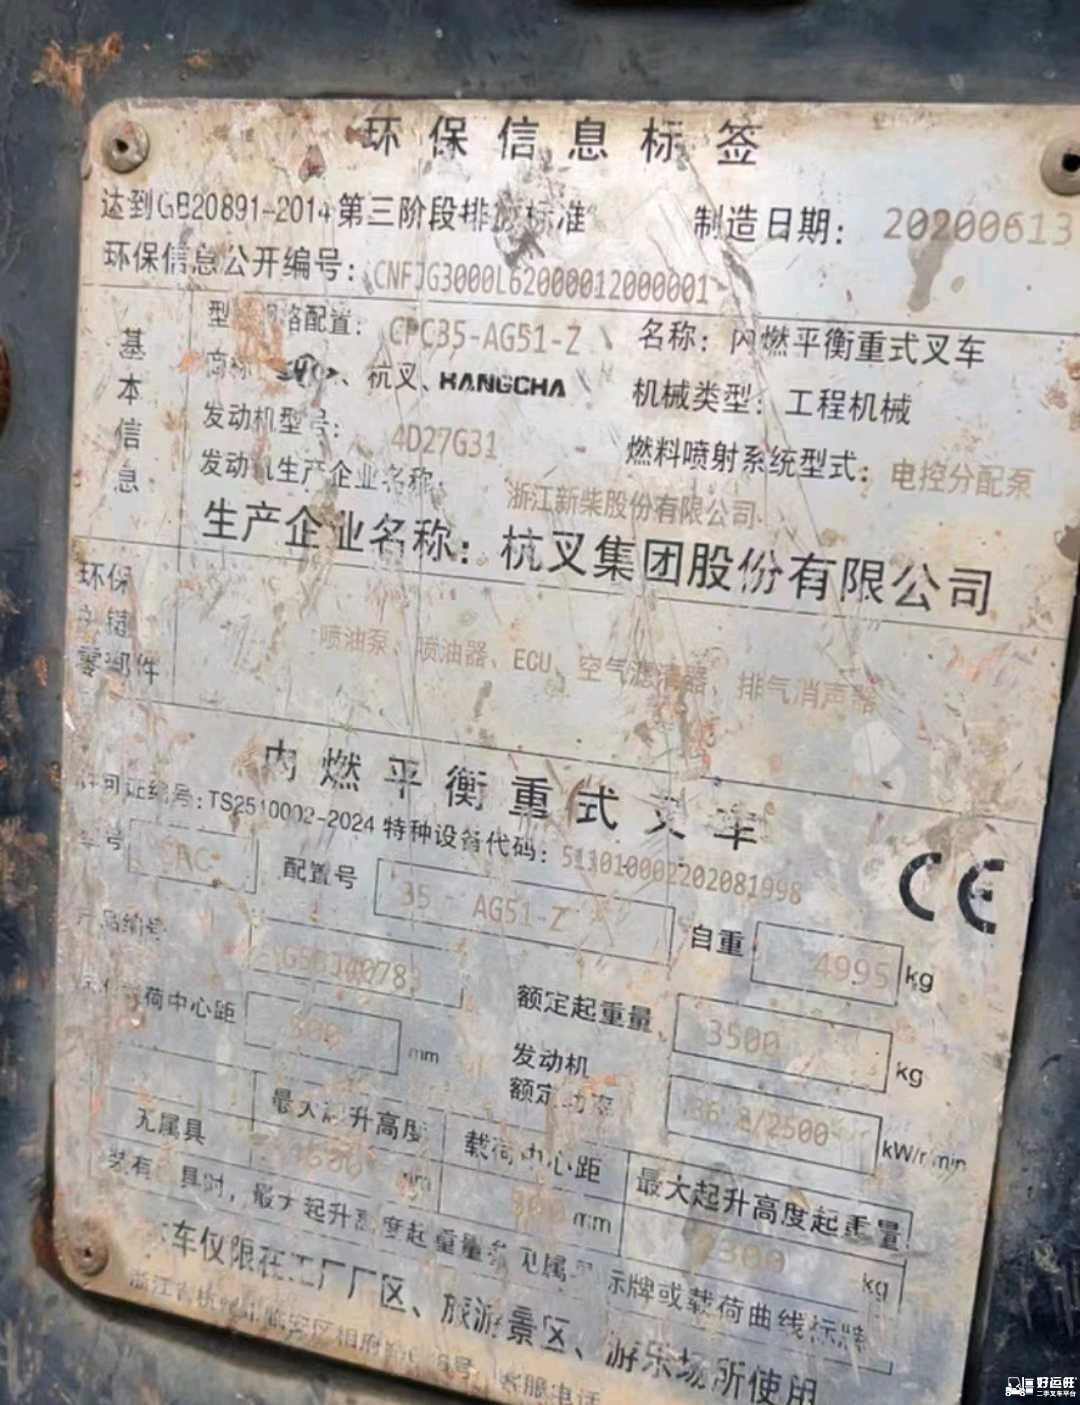 环保信息标签
达到GB20891-2014第三阶段排放标准 制造日期：20200613
环保信息公开编号：CNFJG3000L62000012000001
基本信息
型 规格配置：CPC35-AG51-Z 名称：内燃平衡重式叉车
商标 、杭叉、HANGCHA 机械类型：工程机械
发动机型号：4D27G31 燃料喷射系统型式：电控分配泵
发动机生产企业名称：浙江新柴股份有限公司
生产企业名称：杭叉集团股份有限公司
环保关键零部件
喷油泵、喷油器、ECU、空气滤清器、排气消声器
内燃平衡重式叉车
许可证编号：TS2510002-2024 特种设备代码：511010002202081998
CE
车号 CPC 配置号 35 - AG51-Z 自重 4995 kg
产品编号 额定起重量 3500 kg
荷中心距 500 mm 发动机额定功率 36.8/2500 kW/r/min
最大起升高度 载荷中心距 最大起升高度起重量
无属具 mm 500 mm kg
装有属具时，最大起升高度起重量参见属具标牌或载荷曲线标牌
本车仅限在工厂厂区、旅游景区、游乐场所使用
浙江省杭州市临安区相府路 8号 客服电话
好运旺
二手叉车平台